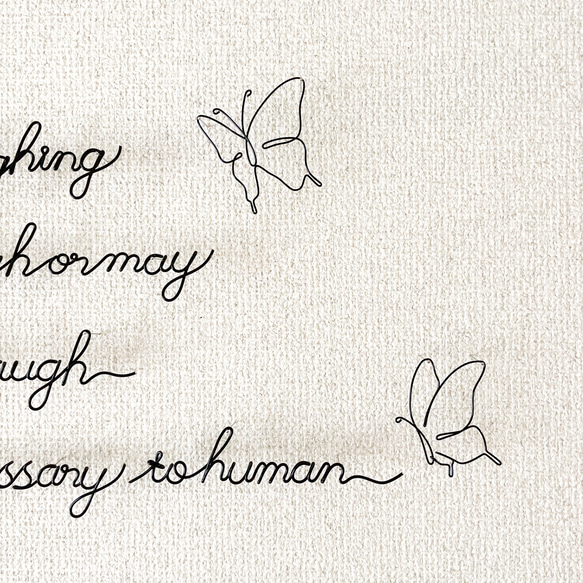 ghing
h or may
augh
ssary to human